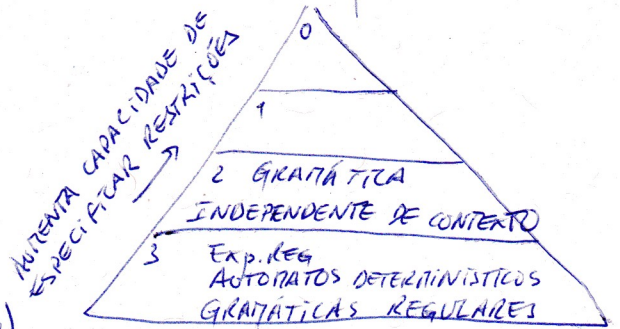 AUMENTA CAPACIDADE DE
ESPECIFICAR RESTRIÇÕES
0
1
2 GRAMÁTICA
INDEPENDENTE DE CONTEXTO
3 EXP.REG
AUTOMATOS DETERMINISTICOS
GRAMÁTICAS REGULARES